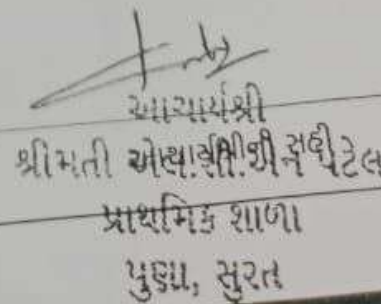 આચાર્યશ્રી
શ્રીમતી પટેલ
પ્રાથમિક શાળા
પુણા, સુરત